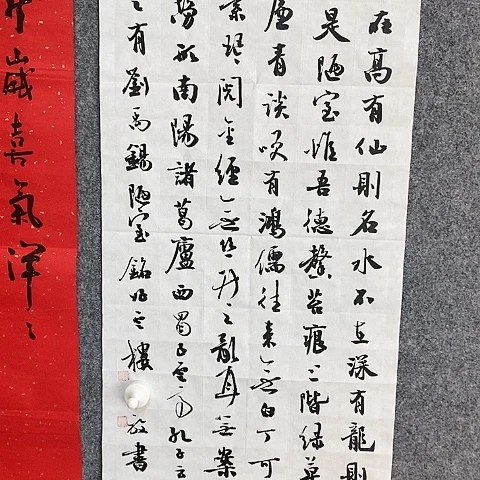 在高有仙則名水不在深有龍則
是陋室惟吾德馨苔痕上階緑草
簾青談咲有鴻儒往来無白丁可
素琴閲金經無絲竹之亂耳無案
勞形南陽諸葛廬西蜀子雲亭孔子云
之有劉禹錫陋室銘樓書
歲喜氣洋〻